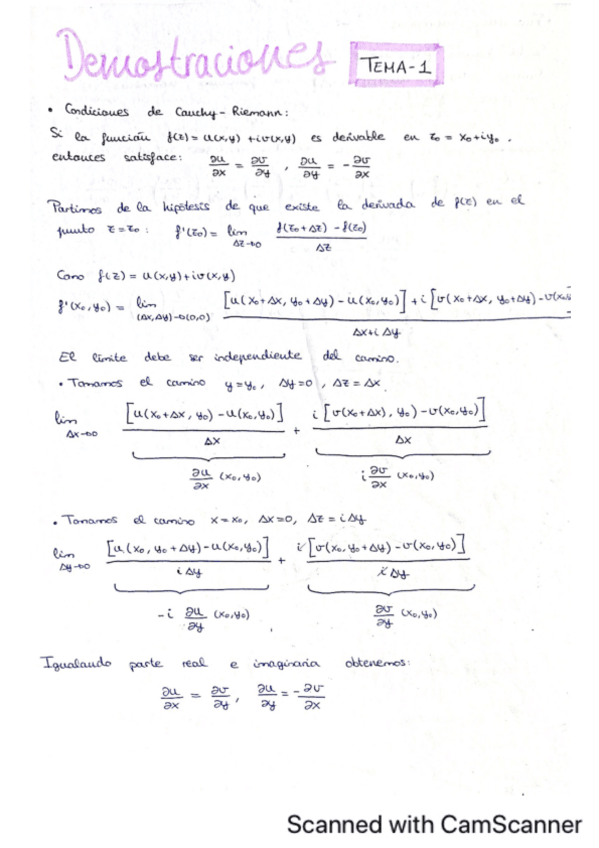 Demostraciones TEMA-1
• Condiciones de Cauchy-Riemann:
Si la función f(z) = u(x,y) + iv(x,y) es derivable en z₀ = x₀+iy₀.
entonces satisface: ∂u/∂x = ∂v/∂y , ∂u/∂y = -∂v/∂x
Partimos de la hipótesis de que existe la derivada de f(z) en el
punto z=z₀: f'(z₀) = lim Δz→0 f(z₀+Δz) - f(z₀) / Δz
Como f(z) = u(x,y)+iv(x,y)
f'(x₀,y₀) = lim (Δx,Δy)→(0,0) [u(x₀+Δx, y₀+Δy) - u(x₀,y₀)] + i [v(x₀+Δx, y₀+Δy) - v(x₀,y / Δx+i Δy
El límite debe ser independiente del camino.
• Tomamos el camino y=y₀, Δy=0, Δz=Δx
lim Δx→0 [u(x₀+Δx, y₀) - u(x₀,y₀)] / Δx + i [v(x₀+Δx), y₀) - v(x₀,y₀)] / Δx
∂u/∂x (x₀,y₀) i ∂v/∂x (x₀,y₀)
• Tomamos el camino x=x₀, Δx=0, Δz=iΔy
lim Δy→0 [u(x₀, y₀+Δy) - u(x₀,y₀)] / i Δy + i [v(x₀, y₀+Δy) - v(x₀,y₀)] / i Δy
-i ∂u/∂y (x₀,y₀) ∂v/∂y (x₀,y₀)
Igualando parte real e imaginaria obtenemos:
∂u/∂x = ∂v/∂y , ∂u/∂y = -∂v/∂x
Scanned with CamScanner